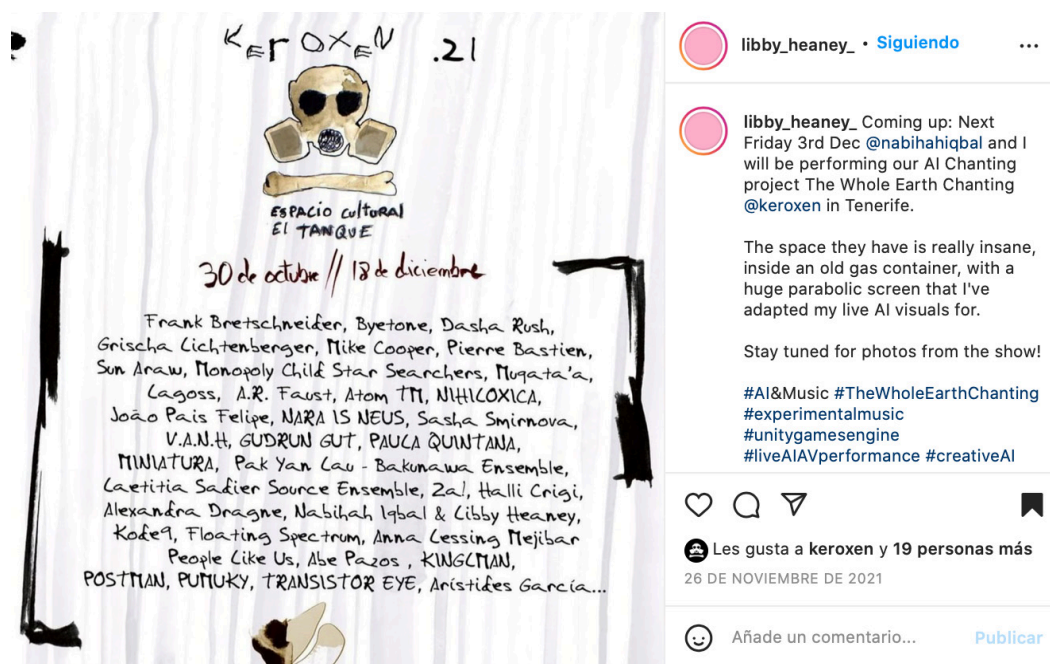 KEROXEN .21
ESPACIO CULTURAL
EL TANQUE
30 de octubre // 18 de diciembre
Frank Bretschneider, Byetone, Dasha Rush,
Grischa Lichtenberger, Mike Cooper, Pierre Bastien,
Sun Araw, Monopoly Child Star Searchers, Muqata'a,
Lagoss, A.R. Faust, Atom TM, NIHILOXICA,
João Pais Felipe, NARA IS NEUS, Sasha Smirnova,
V.A.N.H, GUDRUN GUT, PAULA QUINTANA,
MINIATURA, Pak Yan Lau - Bakunawa Ensemble,
Laetitia Sadier Source Ensemble, Za!, Halli Crigi,
Alexandra Dragne, Nabihah Iqbal & Libby Heaney,
Kode9, Floating Spectrum, Anna Lessing Mejibar
People Like Us, Abe Pazos , KINGLMAN,
POSTMAN, PUMUKY, TRANSISTOR EYE, Arístides García...
libby_heaney_ • Siguiendo
libby_heaney_ Coming up: Next
Friday 3rd Dec @nabihahiqbal and I
will be performing our AI Chanting
project The Whole Earth Chanting
@keroxen in Tenerife.
The space they have is really insane,
inside an old gas container, with a
huge parabolic screen that I've
adapted my live AI visuals for.
Stay tuned for photos from the show!
#AI&Music #TheWholeEarthChanting
#experimentalmusic
#unitygamesengine
#liveAIAVperformance #creativeAI
Les gusta a keroxen y 19 personas más
26 DE NOVIEMBRE DE 2021
Añade un comentario...
Publicar